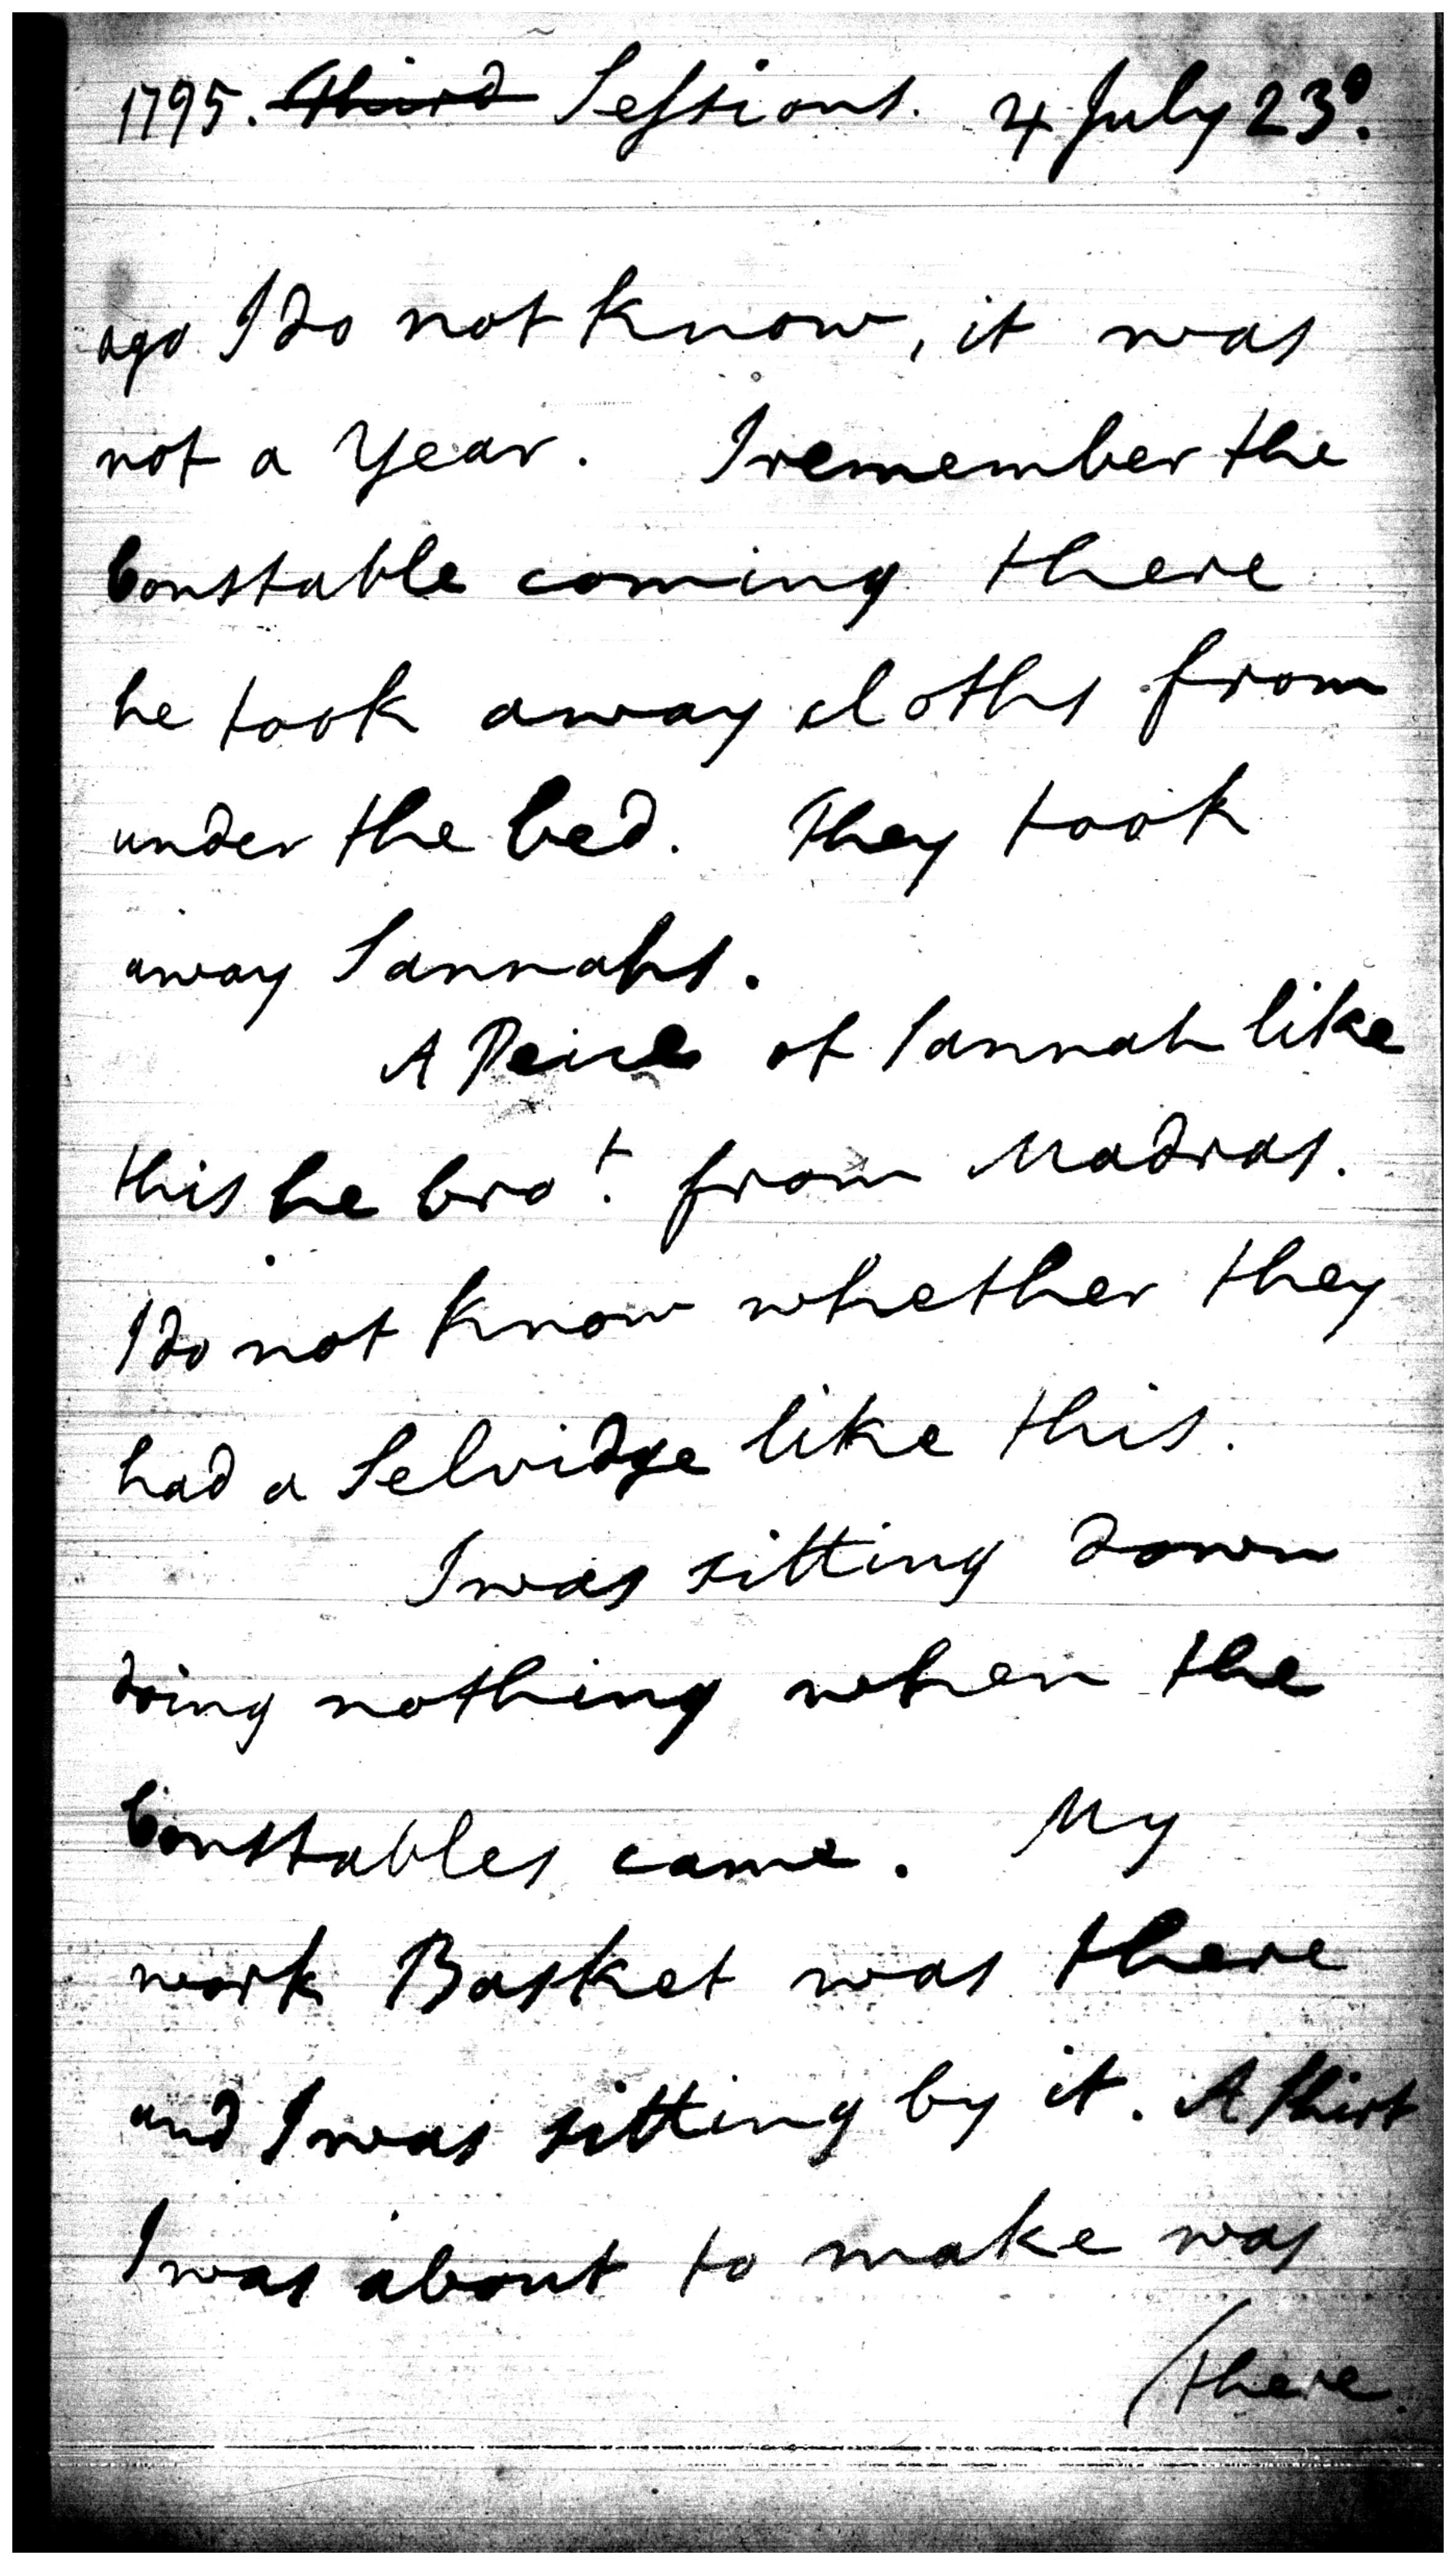 1795. Third Sessions. 4 July 23º.
ago I do not know, it was
not a Year. I remember the
Constable coming there
he took away cloths from
under the bed. They took
away Sannahs.
A Peice of Sannah like
this he bro.t from Madras.
I do not know whether they
had a Selvidge like this.
I was sitting down
doing nothing when the
Constables came. My
work Basket was there
and I was sitting by it. A Shirt
I was about to make was
/there